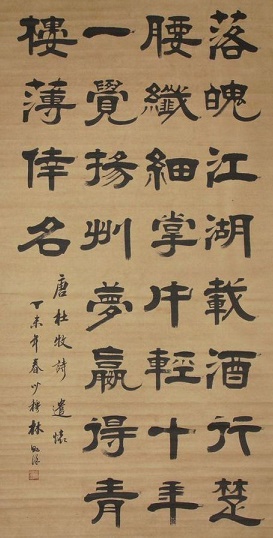 落魄江湖載酒行楚
腰纖細掌中輕十年
一覺揚州夢贏得青
樓薄倖名
唐杜牧詩遣懷
丁未年春